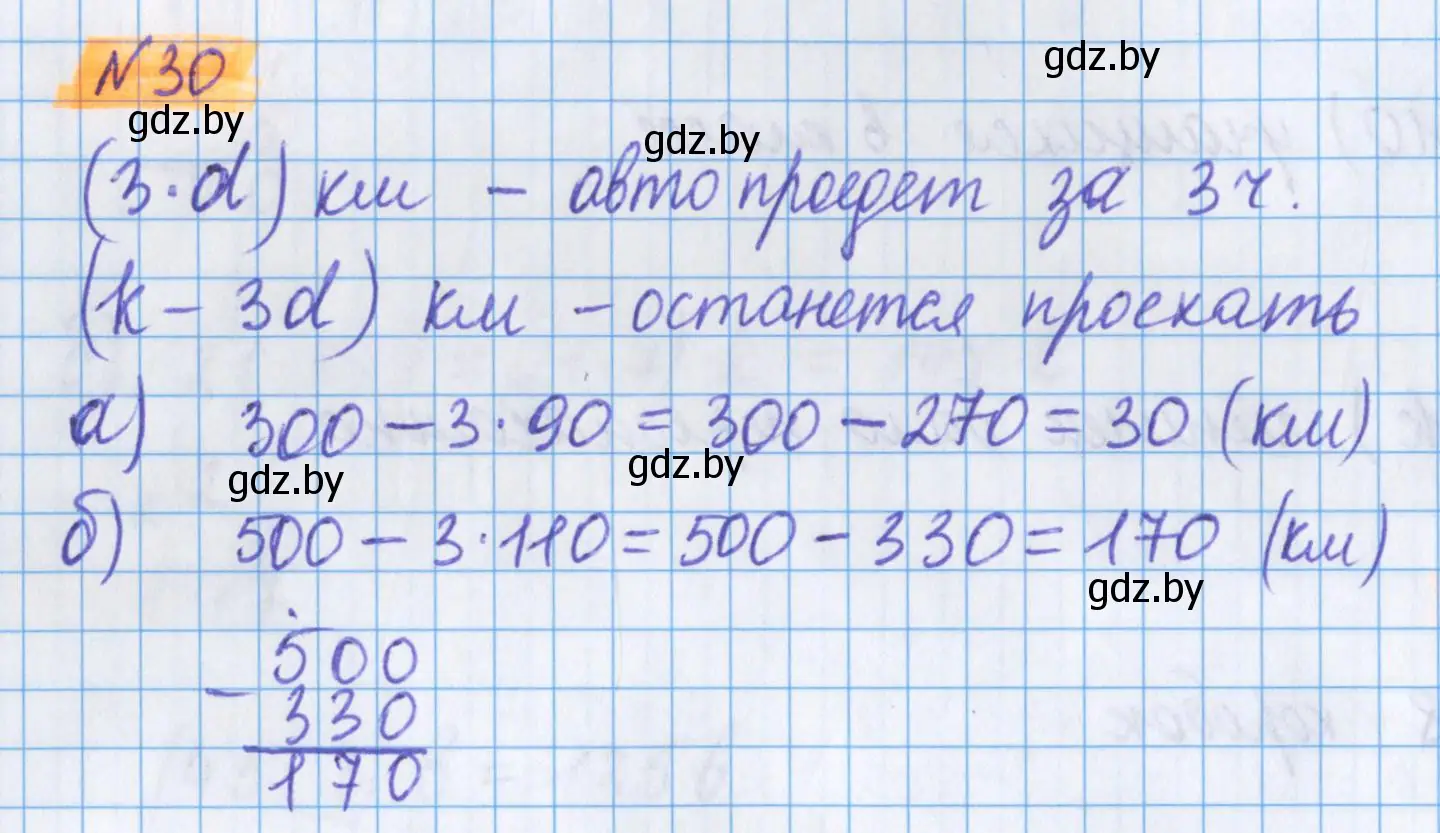 N 30
gdz.by
gdz.by
gdz.by
(3·d) км – авто проедет за 3 ч.
(k – 3d) км – останется проехать
а) 300 – 3·90 = 300 – 270 = 30 (км)
gdz.by
gdz.by
б) 500 – 3·110 = 500 – 330 = 170 (км)
gdz.by
500
– 330
170